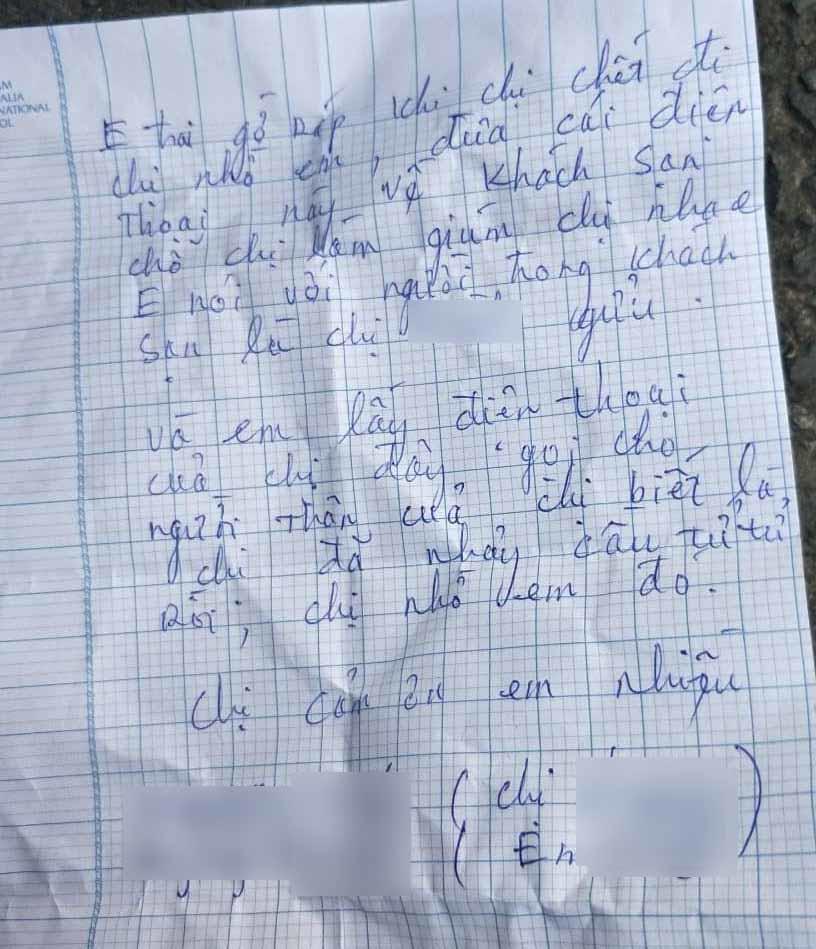 M
ALIA
NATIONAL
OL
E trai gỡ ráp khi chị chết đi
chị nhờ em, đưa cái điện
Thoại này về khách sạn
chỗ chị làm giùm chị nha e
E nói với người trong khách
sạn là chị gửi.
và em lấy điện thoại
của chị đây gọi cho
người thân của chị biết là,
chị đã nhảy cầu tử tử
rồi; chị nhờ em đó.
Chị cảm ơn em nhiều
(chị